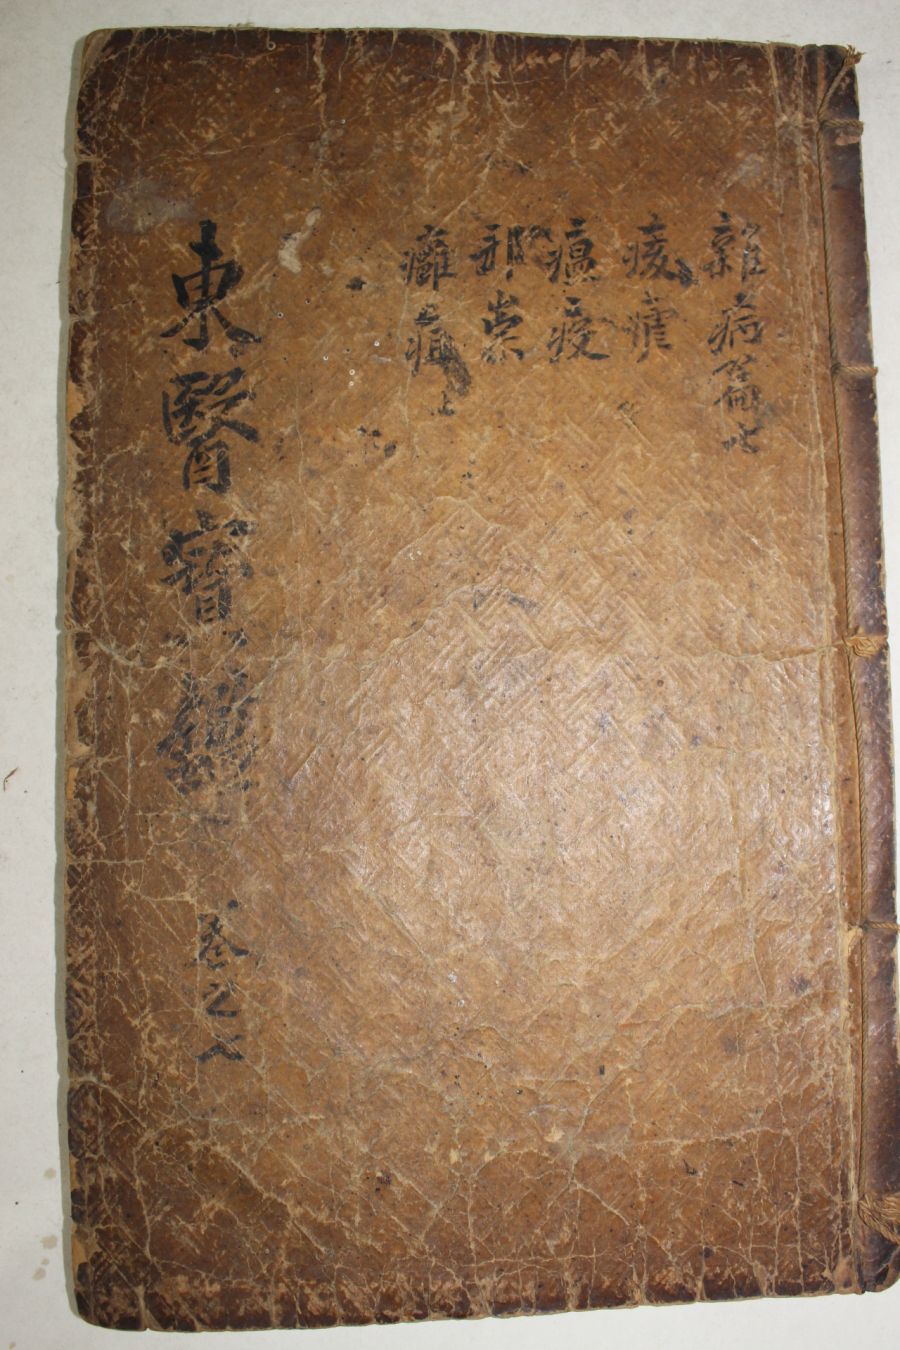 雜病篇七
痎瘧
瘟疫
邪祟
癰疽上
東醫寶鑑
卷之七